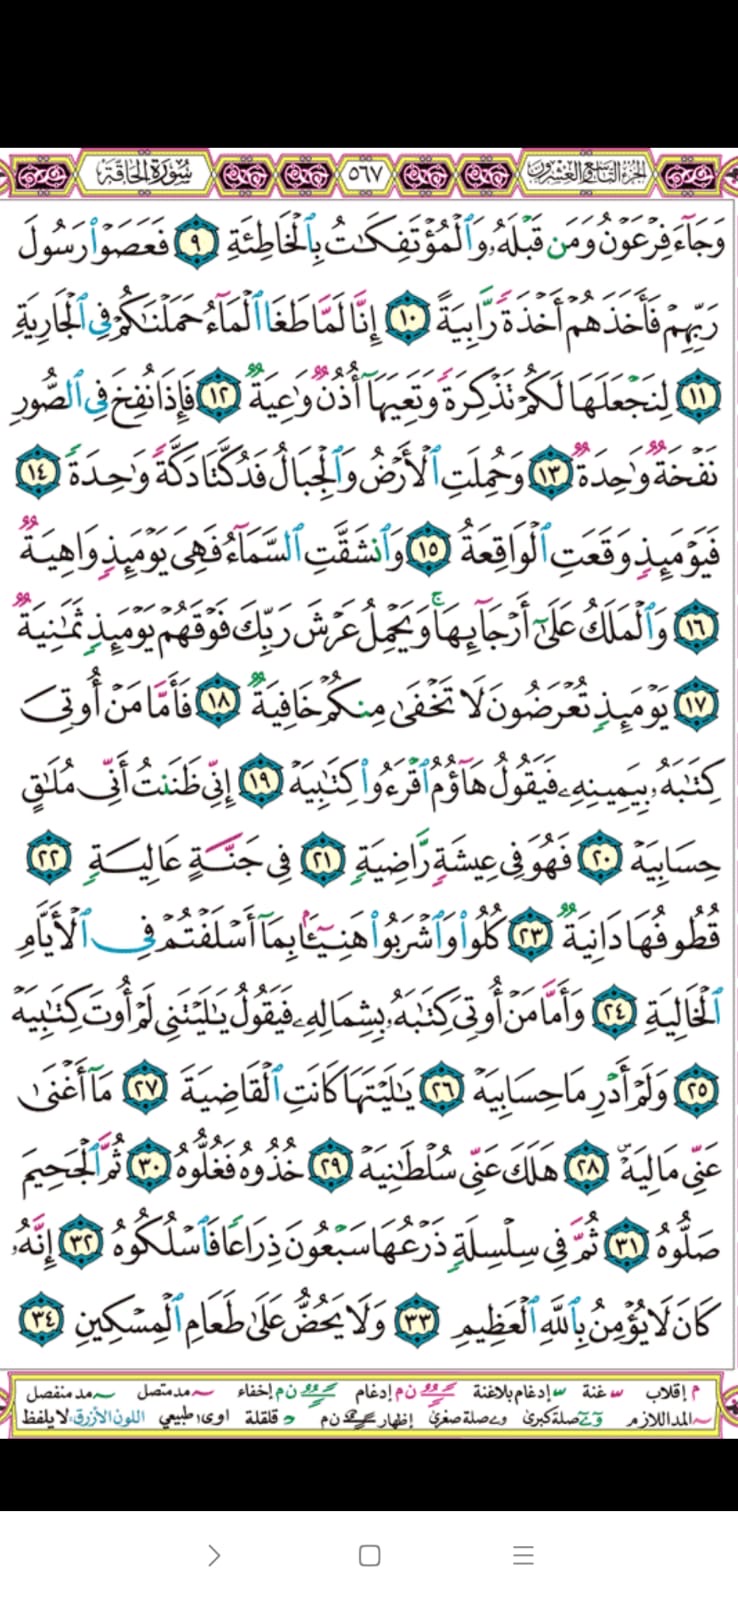 الجزء التاسع والعشرون ٥٦٧ سورة الحاقة
وَجَآءَ فِرْعَوْنُ وَمَن قَبْلَهُۥ وَٱلْمُؤْتَفِكَٰتُ بِٱلْخَاطِئَةِ ٩ فَعَصَوْا۟ رَسُولَ
رَبِّهِمْ فَأَخَذَهُمْ أَخْذَةً رَّابِيَةً ١٠ إِنَّا لَمَّا طَغَا ٱلْمَآءُ حَمَلْنَٰكُمْ فِى ٱلْجَارِيَةِ
١١ لِنَجْعَلَهَا لَكُمْ تَذْكِرَةً وَتَعِيَهَآ أُذُنٌ وَٰعِيَةٌ ١٢ فَإِذَا نُفِخَ فِى ٱلصُّورِ
نَفْخَةٌ وَٰحِدَةٌ ١٣ وَحُمِلَتِ ٱلْأَرْضُ وَٱلْجِبَالُ فَدُكَّتَا دَكَّةً وَٰحِدَةً ١٤
فَيَوْمَئِذٍ وَقَعَتِ ٱلْوَاقِعَةُ ١٥ وَٱنشَقَّتِ ٱلسَّمَآءُ فَهِىَ يَوْمَئِذٍ وَاهِيَةٌ
١٦ وَٱلْمَلَكُ عَلَىٰٓ أَرْجَآئِهَا ۚ وَيَحْمِلُ عَرْشَ رَبِّكَ فَوْقَهُمْ يَوْمَئِذٍ ثَمَٰنِيَةٌ
١٧ يَوْمَئِذٍ تُعْرَضُونَ لَا تَخْفَىٰ مِنكُمْ خَافِيَةٌ ١٨ فَأَمَّا مَنْ أُوتِىَ
كِتَٰبَهُۥ بِيَمِينِهِۦ فَيَقُولُ هَآؤُمُ ٱقْرَءُوا۟ كِتَٰبِيَهْ ١٩ إِنِّى ظَنَنتُ أَنِّى مُلَٰقٍ
حِسَابِيَهْ ٢٠ فَهُوَ فِى عِيشَةٍ رَّاضِيَةٍ ٢١ فِى جَنَّةٍ عَالِيَةٍ ٢٢
قُطُوفُهَا دَانِيَةٌ ٢٣ كُلُوا۟ وَٱشْرَبُوا۟ هَنِيٓـًٔۢا بِمَآ أَسْلَفْتُمْ فِى ٱلْأَيَّامِ
ٱلْخَالِيَةِ ٢٤ وَأَمَّا مَنْ أُوتِىَ كِتَٰبَهُۥ بِشِمَالِهِۦ فَيَقُولُ يَٰلَيْتَنِى لَمْ أُوتَ كِتَٰبِيَهْ
٢٥ وَلَمْ أَدْرِ مَا حِسَابِيَهْ ٢٦ يَٰلَيْتَهَا كَانَتِ ٱلْقَاضِيَةَ ٢٧ مَآ أَغْنَىٰ
عَنِّى مَالِيَهْ ۜ ٢٨ هَلَكَ عَنِّى سُلْطَٰنِيَهْ ٢٩ خُذُوهُ فَغُلُّوهُ ٣٠ ثُمَّ ٱلْجَحِيمَ
صَلُّوهُ ٣١ ثُمَّ فِى سِلْسِلَةٍ ذَرْعُهَا سَبْعُونَ ذِرَاعًا فَٱسْلُكُوهُ ٣٢ إِنَّهُۥ
كَانَ لَا يُؤْمِنُ بِٱللَّهِ ٱلْعَظِيمِ ٣٣ وَلَا يَحُضُّ عَلَىٰ طَعَامِ ٱلْمِسْكِينِ ٣٤
م إقلاب غنة إدغام بلاغنة ن م إدغام ن م إخفاء مد متصل مد منفصل
المد اللازم صلة كبرى صلة صغرى إظهار ن م قلقلة اوى طبيعي اللون الأزرق: لا يلفظ